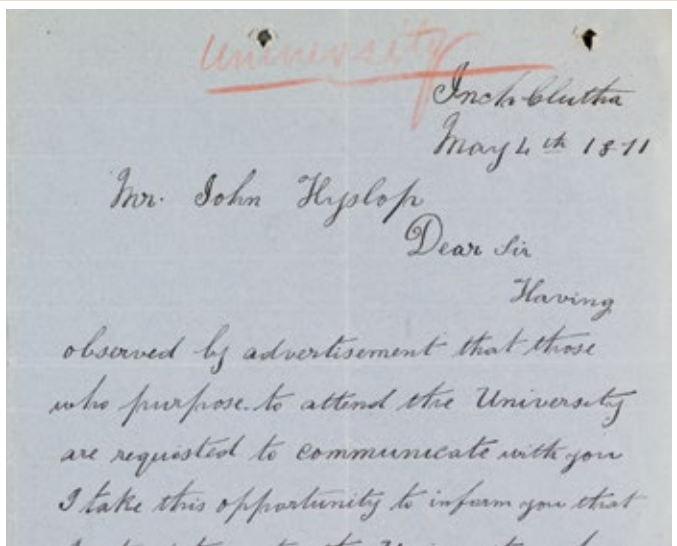 University
Inch Clutha
May 4th 1871
Mr. John Hyslop
Dear Sir
Having
observed by advertisement that those
who purpose to attend the University
are requested to communicate with you
I take this opportunity to inform you that